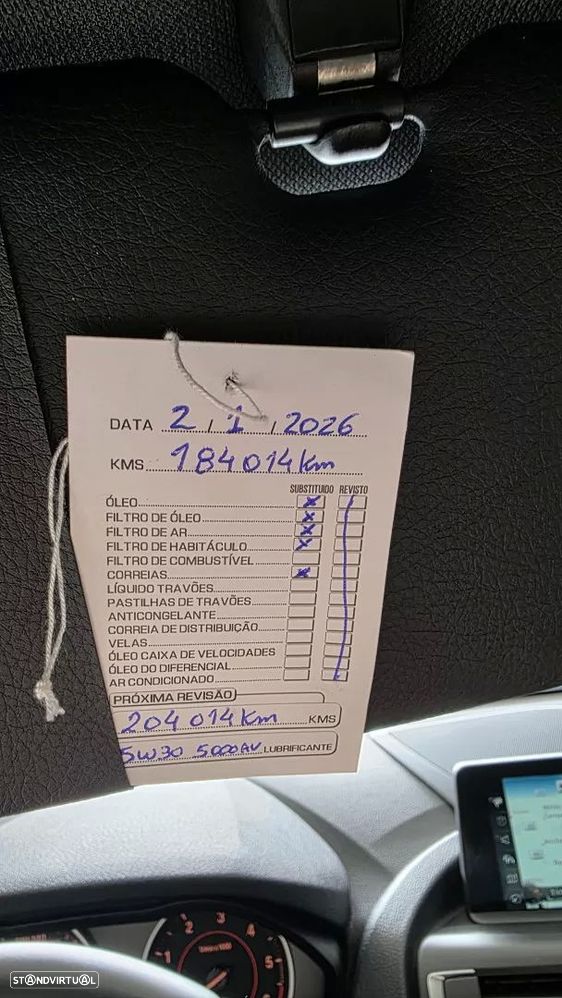 DATA 2 / 1 / 2026
KMS 184014km
SUBSTITUIDO REVISTO
ÓLEO
FILTRO DE ÓLEO
FILTRO DE AR
FILTRO DE HABITÁCULO
FILTRO DE COMBUSTÍVEL
CORREIAS
LÍQUIDO TRAVÕES
PASTILHAS DE TRAVÕES
ANTICONGELANTE
CORREIA DE DISTRIBUIÇÃO
VELAS
ÓLEO CAIXA DE VELOCIDADES
ÓLEO DO DIFERENCIAL
AR CONDICIONADO
PRÓXIMA REVISÃO
204014km KMS
5W30 LUBRIFICANTE
1 2 3 4 5
STANDVIRTUAL